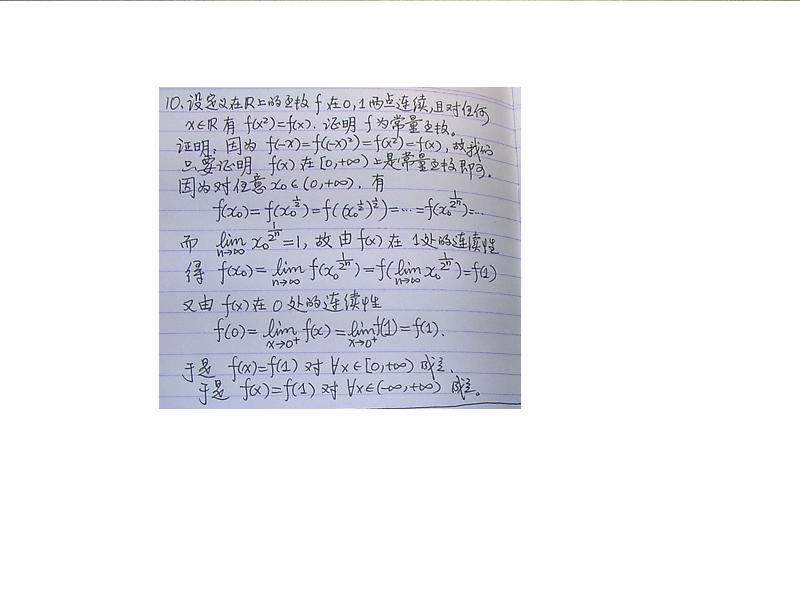 10、设定义在R上的函数 f 在0,1两点连续,且对任何
x∈R 有 f(x²)=f(x). 证明 f 为常量函数。
证明: 因为 f(-x)=f((-x)²)=f(x²)=f(x), 故我们
只要证明 f(x) 在 [0,+∞) 上是常量函数即可。
因为对任意 x₀∈(0,+∞). 有
f(x₀)=f(x₀^{1/2})=f((x₀^{1/2})^{1/2})=⋯=f(x₀^{1/2ⁿ})=⋯
而 lim_{n→∞} x₀^{1/2ⁿ}=1, 故由 f(x) 在 1处的连续性
得 f(x₀)=lim_{n→∞} f(x₀^{1/2ⁿ})=f(lim_{n→∞} x₀^{1/2ⁿ})=f(1)
又由 f(x) 在 0 处的连续性
f(0)=lim_{x→0⁺} f(x)=lim_{x→0⁺} f(1)=f(1).
于是 f(x)=f(1) 对 ∀x∈[0,+∞) 成立.
于是 f(x)=f(1) 对 ∀x∈(-∞,+∞) 成立。